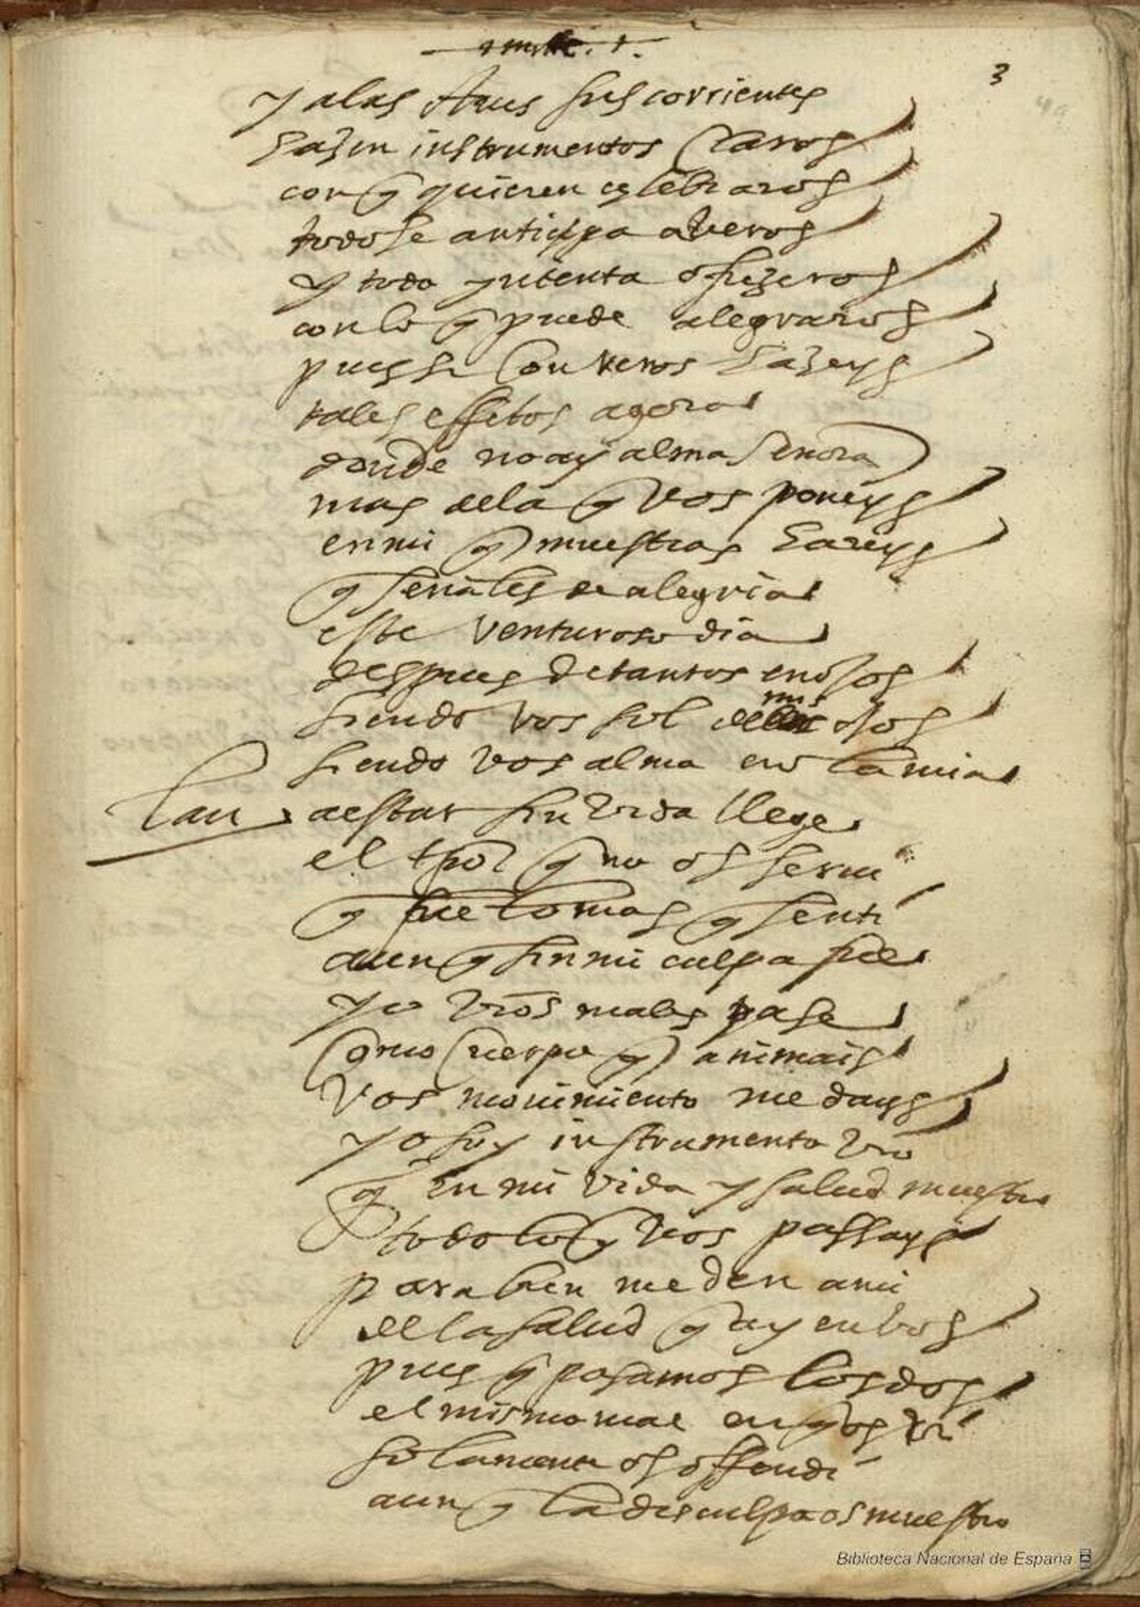 3
y alas Aues sus corrientes
hazen instrumentos claros
con q̄ quieren çelebraros
todo se antiçipa a veros
y todo yntenta ofreçeros
con lo q̄ puede alegraros
pues si con veros hazeys
tales effetos agora
donde no ay alma señora
mas dela q̄ vos poneys
en mi q̄ muestras hareys
q̄ señales de alegria
este venturoso dia
despues de tantos enojos
siendo vos sol de mis ojos
siendo vos alma en la mia
Lau aestar sin vida llege
el tpō q̄ no os serui
q̄ fue lo mas q̄ senti
aunq̄ sin mi culpa fue
yo vr̄os males pase
como cuerpo q̄ animais
vos movimiento me days
yo soy instrumento vr̄o
q̄ en mi vida y salud muestro
todo lo q̄ vos passays
parabien me den ami
de la salud q̄ ay en vos
pues q̄ pasamos los dos
el mismo mal en q̄ os vi
solamente os offendi
aunq̄ la disculpa os muestro
Biblioteca Nacional de España